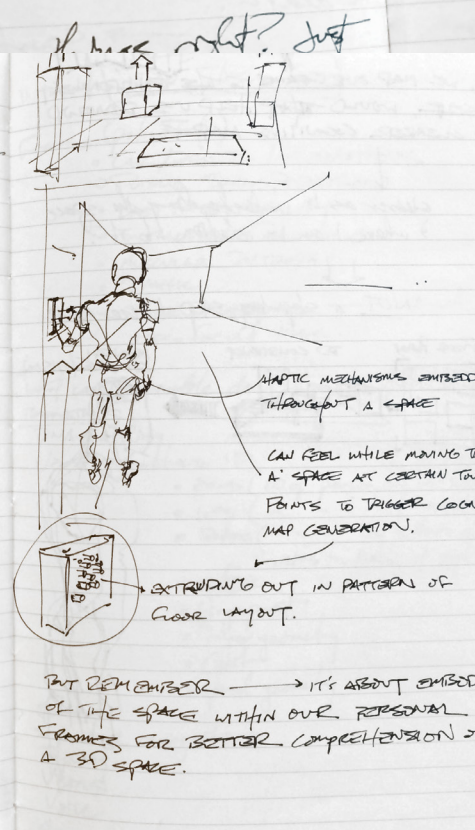 right? Just
HAPTIC MECHANISMS EMBEDD
THROUGHOUT A SPACE
CAN FEEL WHILE MOVING T
A SPACE AT CERTAIN TO
POINTS TO TRIGGER COGN
MAP GENERATION.
EXTRUDING OUT IN PATTERN OF
FLOOR LAYOUT.
BUT REMEMBER → IT'S ABOUT EMBOD
OF THE SPACE WITHIN OUR PERSONAL
FRAMES FOR BETTER COMPREHENSION O
A 3D SPACE.